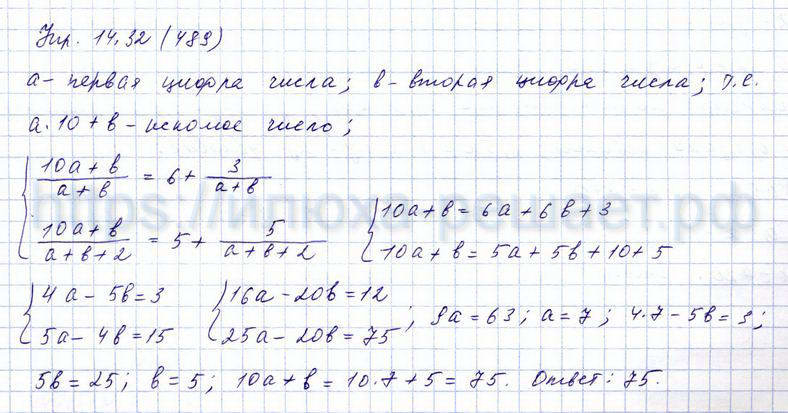 Упр. 14.32 (489)
а - первая цифра числа; в - вторая цифра числа; т.е.
а·10 + в - искомое число;
{ (10а + в)/(а + в) = 6 + 3/(а + в)
{ (10а + в)/(а + в + 2) = 5 + 5/(а + в + 2)
{ 10а + в = 6а + 6в + 3
{ 10а + в = 5а + 5в + 10 + 5
{ 4а - 5в = 3
{ 5а - 4в = 15
{ 16а - 20в = 12
{ 25а - 20в = 75
; 9а = 63; а = 7; 4·7 - 5в = 3;
5в = 25; в = 5; 10а + в = 10·7 + 5 = 75. Ответ: 75.
https://илюха-решает.рф